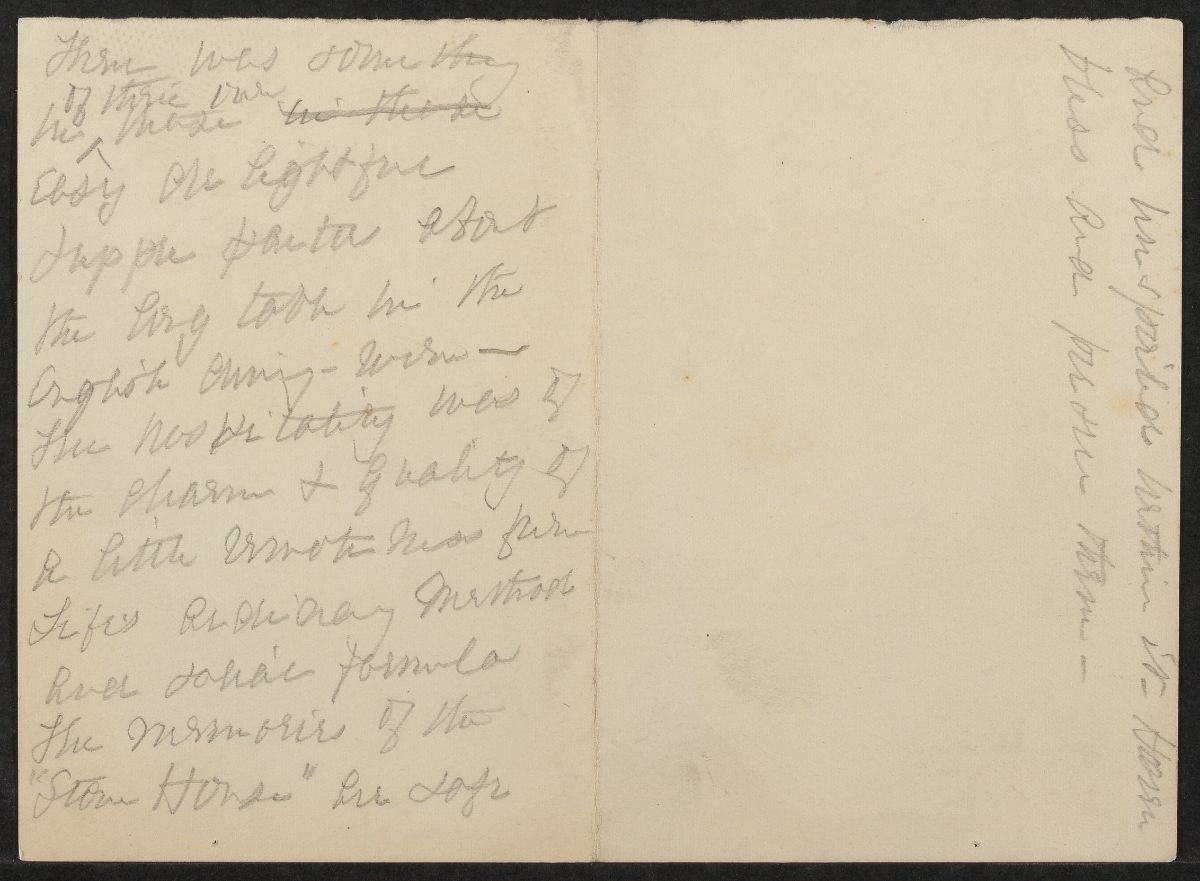 There was something
of their own
in those in those
Easy delightful
supper parties about
the long table in the
English dining-room—
The hospitality was of
the charm & quality of
a little remoteness from
Life's ordinary method
and social formula
The memories of the
"Stone House" are safe
And unspoiled within its
bless and pardon them—